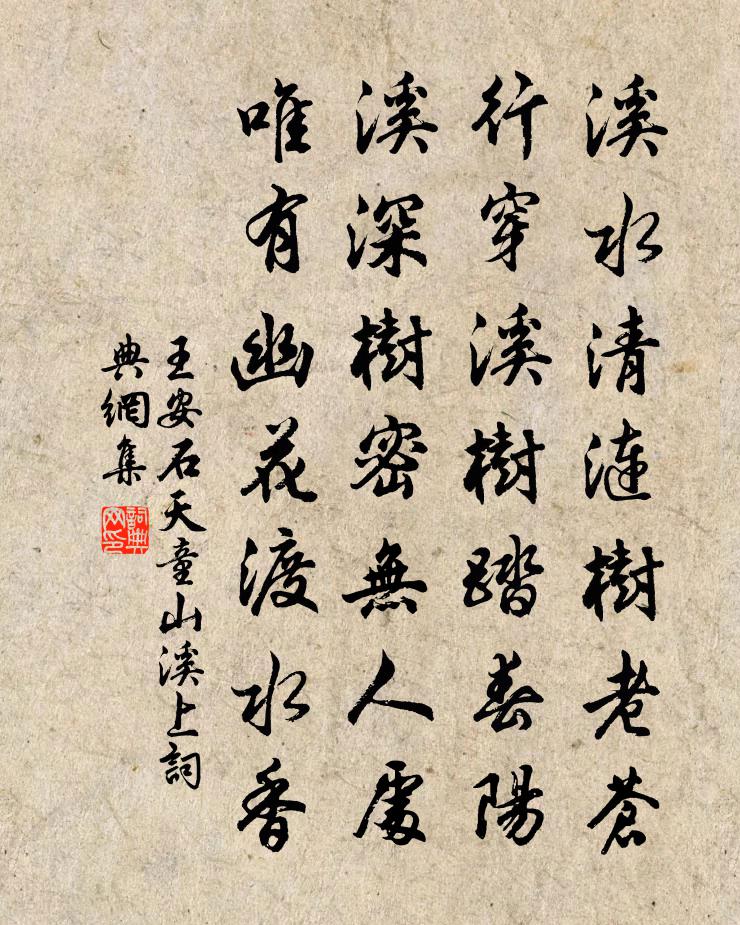 溪水清漣樹老蒼
行穿溪樹踏春陽
溪深樹密無人處
唯有幽花渡水香
王安石天童山溪上詞
典網集
詞典
网印